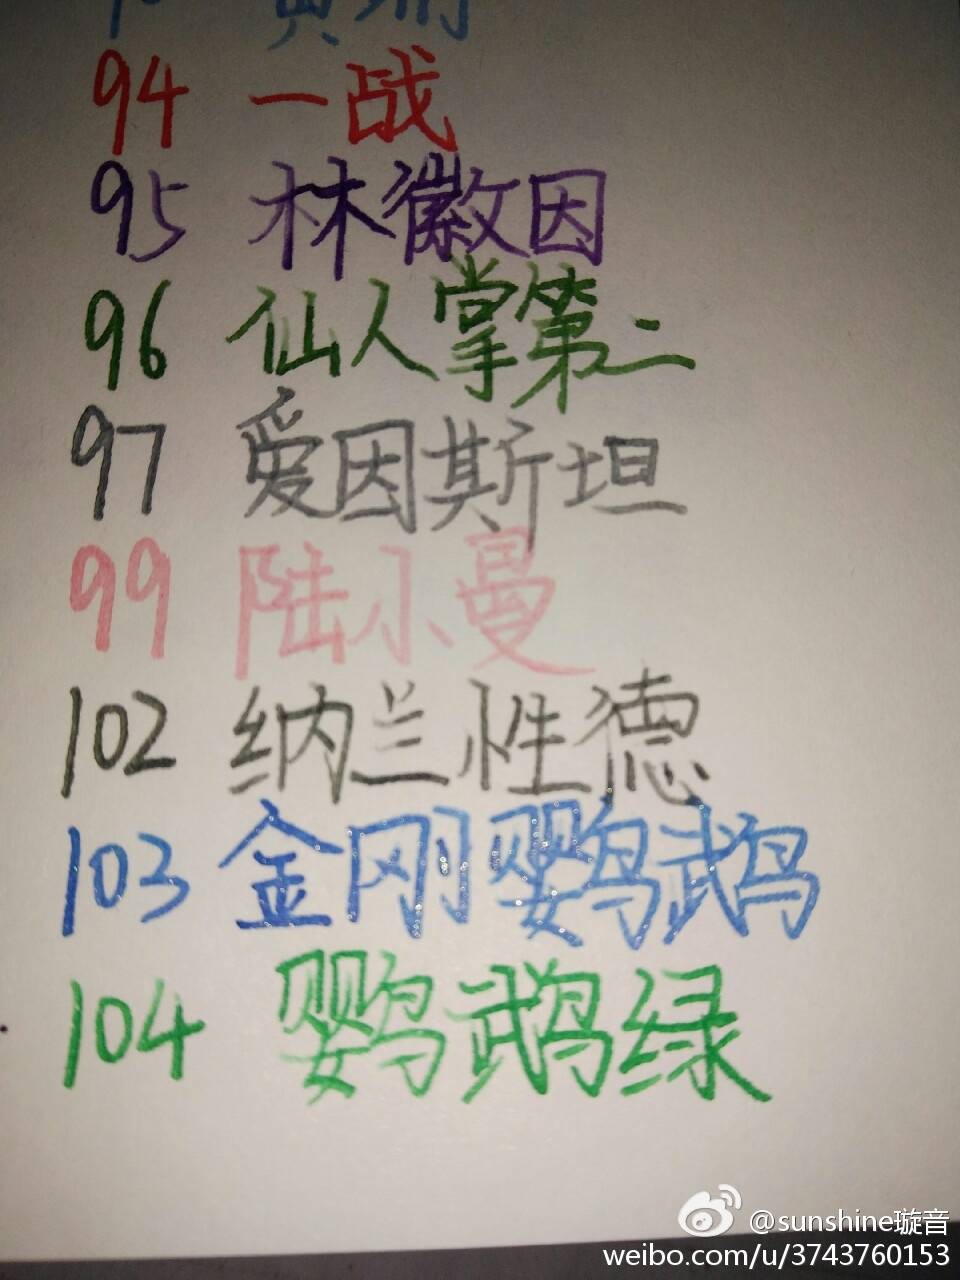 94 一战
95 林徽因
96 仙人掌第二
97 爱因斯坦
99 陆小曼
102 纳兰性德
103 金刚鹦鹉
104 鹦鹉绿
@sunshine璇音
weibo.com/u/3743760153